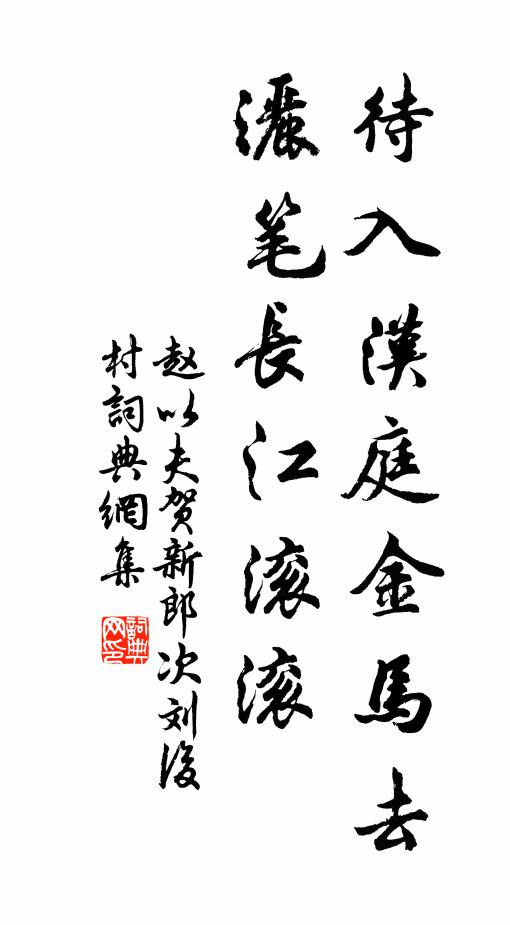 待入漢庭金馬去
灑笔長江滚滚
赵以夫贺新郎次刘後
村詞典網集
詞典
网印